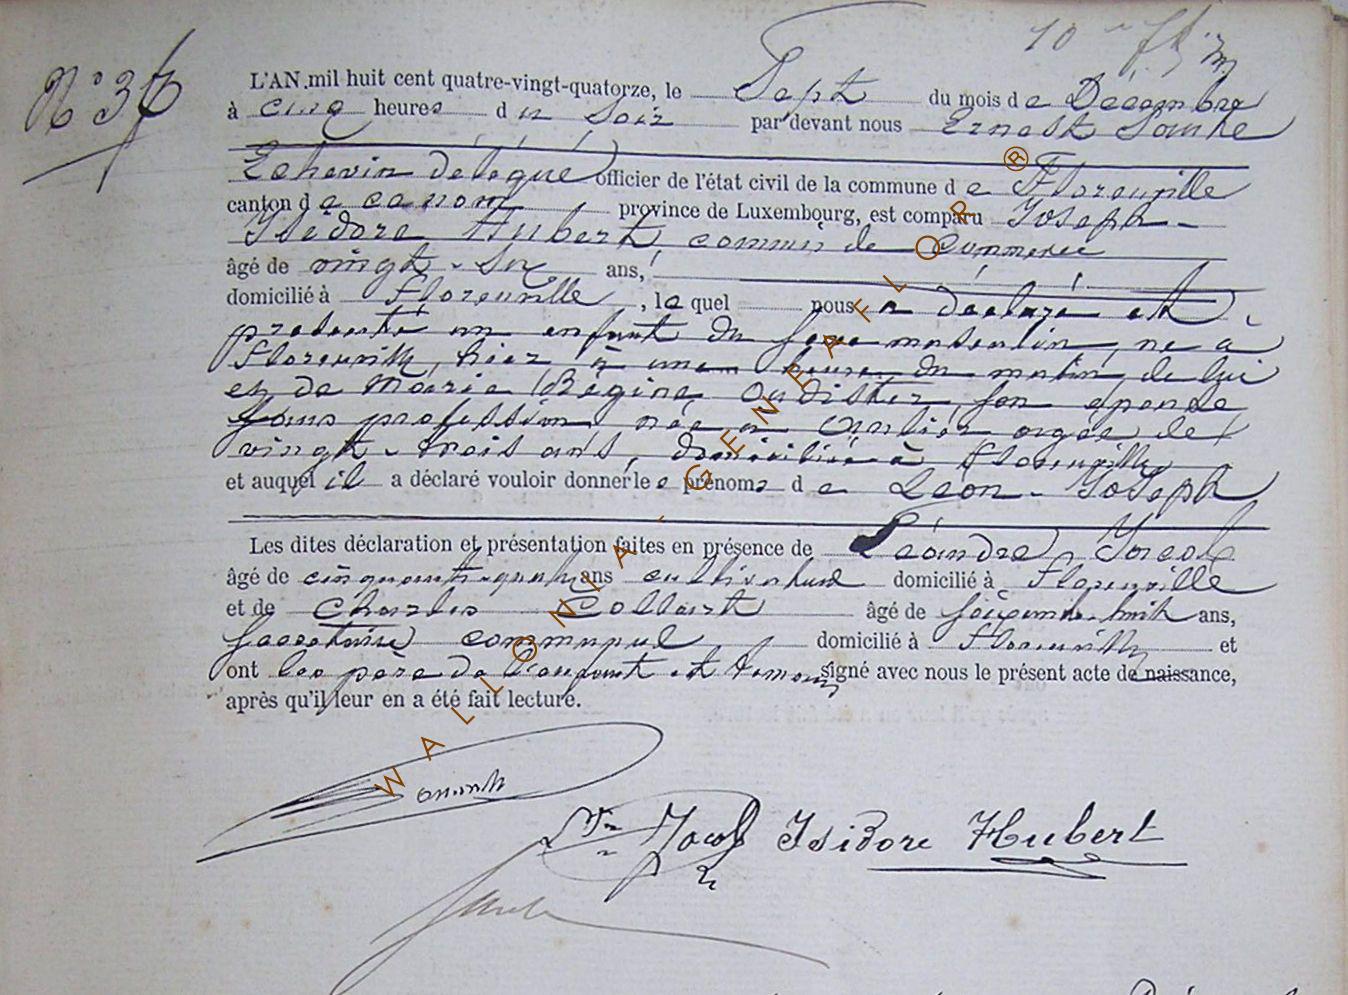 N° 36
L'AN mil huit cent quatre-vingt-quatorze, le Sept du mois de Décembre
à cinq heures du Soir par devant nous Ernest
Echevin délégué officier de l'état civil de la commune de Florenville
canton de province de Luxembourg, est comparu Joseph-
Isidore Hubert, commis de commerce
âgé de vingt-six ans,
domicilié à Florenville, le quel nous a déclaré et
présenté un enfant du sexe masculin, né à
Florenville, hier à une heure du matin, de lui
et de Marie Régine son épouse
sans profession née à âgée de
vingt-trois ans, domiciliée à Florenville
et auquel il a déclaré vouloir donner le s prénoms de Léon-Joseph
Les dites déclaration et présentation faites en présence de Léandre Jacob
âgé de cinquante-quatre ans cultivateur domicilié à Florenville
et de Charles Collart âgé de soixante-huit ans,
secrétaire communal domicilié à Florenville et
ont les père de l'enfant et témoins signé avec nous le présent acte de naissance,
après qu'il leur en a été fait lecture.
Jacob Isidore Hubert
WALLONIA-GENEAFLOR®